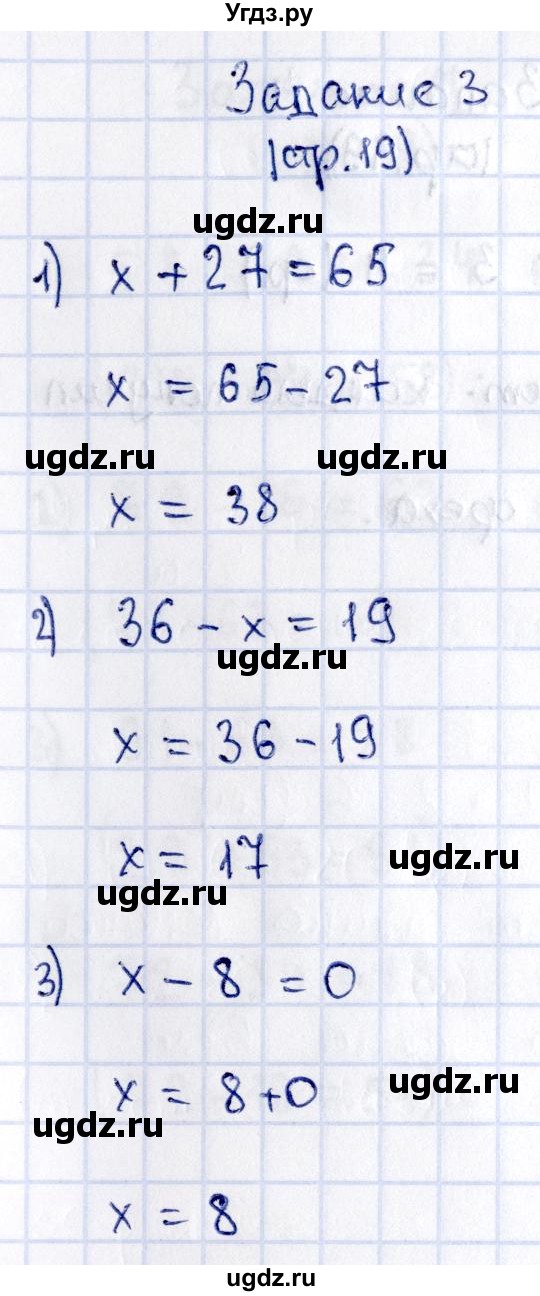 Угдз.ру
Задание 3
(стр.19)
ugdz.ru
1) x + 27 = 65
x = 65 - 27
ugdz.ru ugdz.ru
x = 38
2) 36 - x = 19
ugdz.ru
x = 36 - 19
x = 17 ugdz.ru
ugdz.ru
3) x - 8 = 0
x = 8 + 0 ugdz.ru
ugdz.ru
x = 8
ugdz.ru